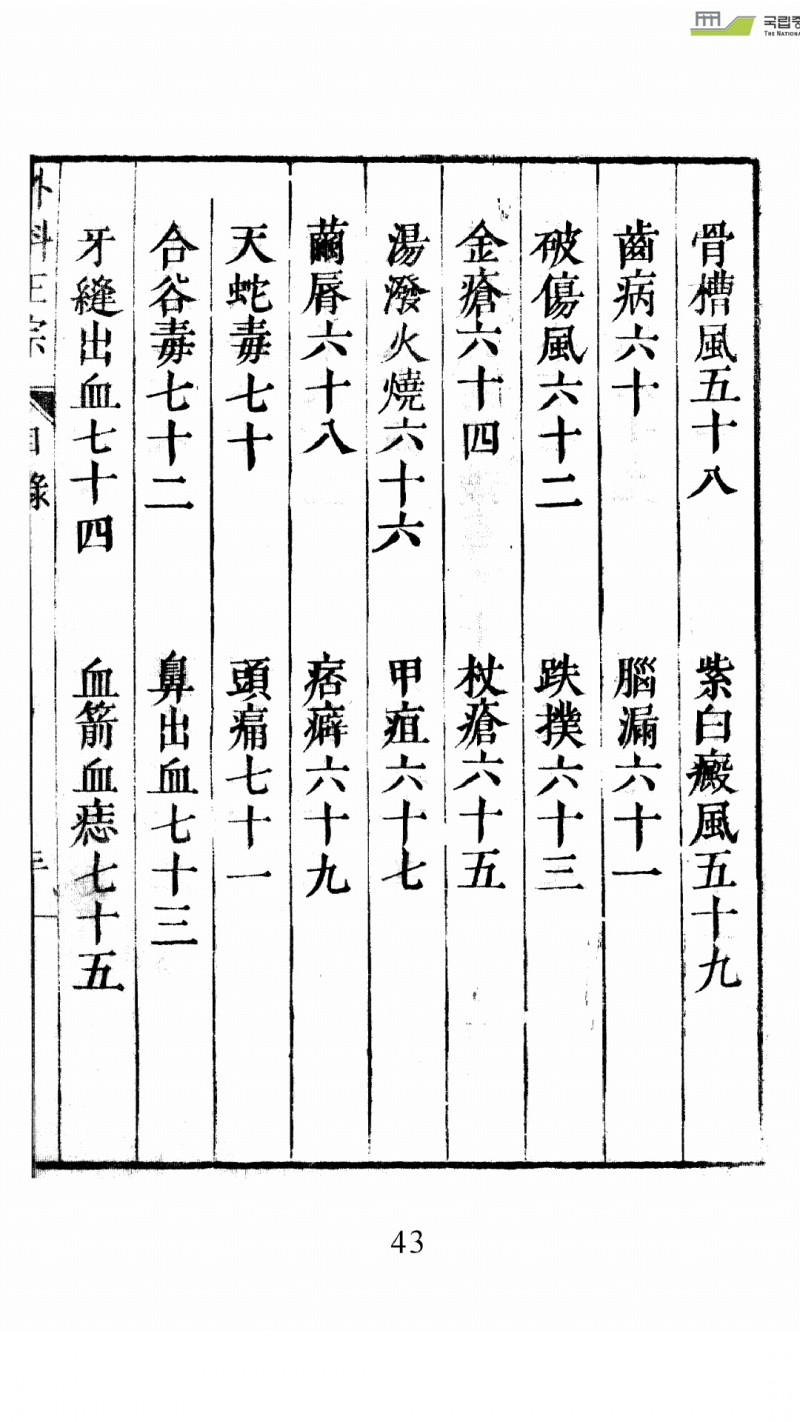 국립중
THE NATIONA
骨槽風五十八 紫白癜風五十九
齒病六十 腦漏六十一
破傷風六十二 跌撲六十三
金瘡六十四 杖瘡六十五
湯潑火燒六十六 甲疽六十七
繭脣六十八 痞癖六十九
天蛇毒七十 頭痛七十一
合谷毒七十二 鼻出血七十三
牙縫出血七十四 血箭血痣七十五
外科正宗 目錄
43